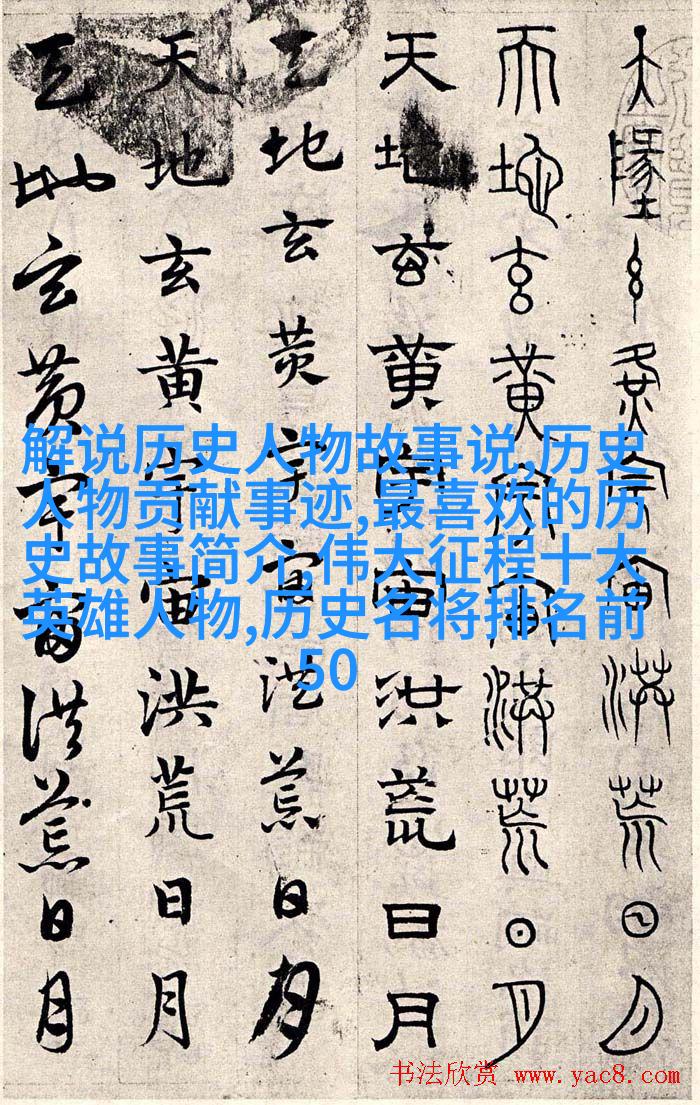 天墬玄黃宇宙洪荒日月
天地玄黃宇宙洪荒日月
天地玄黃宇宙洪荒日月
天地玄黄宇宙洪荒日月
天地玄黄宇宙洪荒日月
天地玄黄宇宙洪荒日月
解说历史人物故事说,历史
人物贡献事迹,最喜欢的历
史故事简介,伟大征程十大
英雄人物,历史名将排名前
50
书法欣赏 www.yac8.com